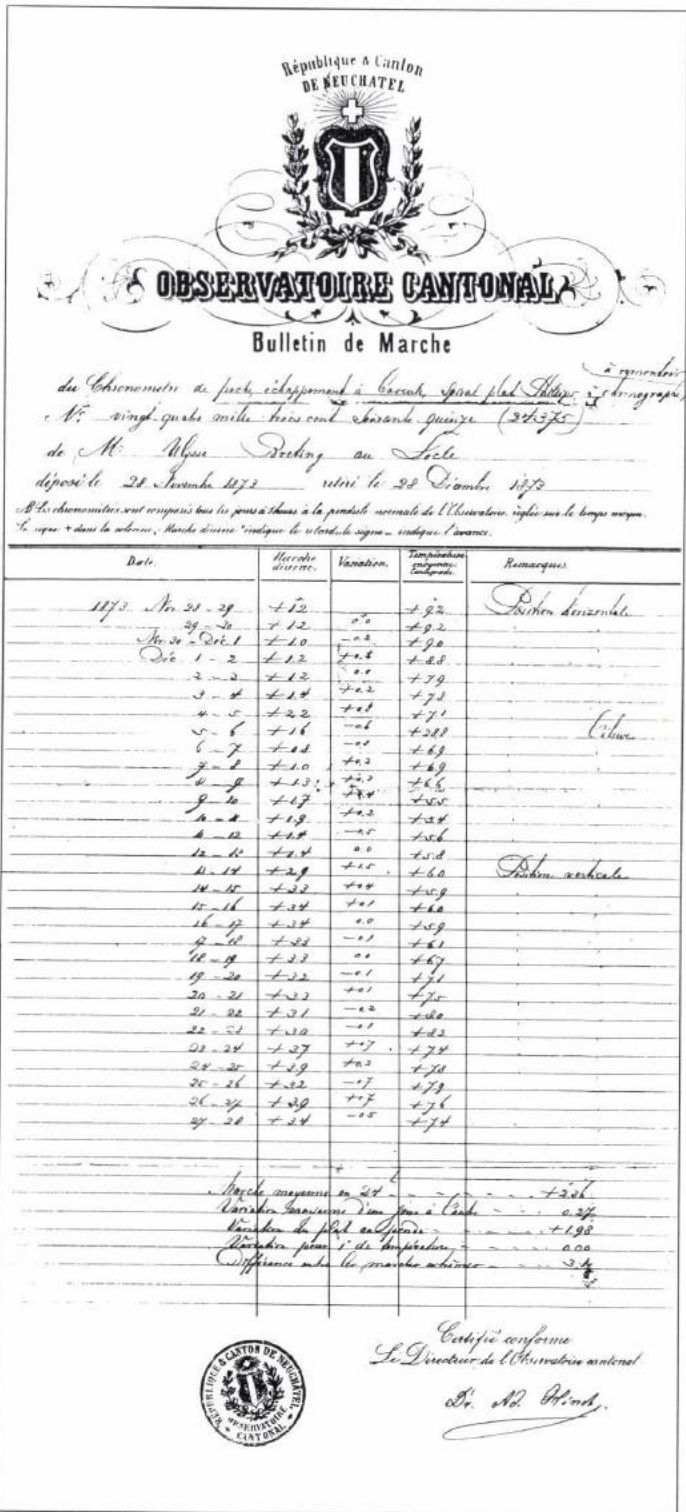 République & Canton
DE NEUCHATEL
OBSERVATOIRE CANTONAL
Bulletin de Marche
à remontoir
du Chronomètre de poche, échappement à spiral plat à chronographe
N° vingt quatre mille trois cent soixante quinze (24375)
de M Ulysse Breting au Locle
déposé le 28 Novembre 1873 retiré le 28 Décembre 1873
Les chronomètres sont comparés tous les jours à 1 heure à la pendule normale de l'Observatoire, réglée sur le temps moyen.
Le signe + dans la colonne, Marche diurne indique le retard, le signe – indique l'avance.
Date. Marche diurne. Variation. Température moyenne Centigrade. Remarques.
1873 Nov. 28 - 29 +1.2 +9.2 Position horizontale
29 - 30 +1.2 0.0 +9.2
Nov. 30 - Déc. 1 +1.0 -0.2 +9.0
Déc. 1 - 2 +1.2 +8.8
2 - 3 +1.2 0.0 +7.9
3 - 4 +1.4 +0.2 +7.3
4 - 5 +2.2 +0.8 +7.1
5 - 6 +1.6 -0.6 +28.8 Etuve
6 - 7 +0.8 -0.8 +6.9
7 - 8 +1.0 +6.9
8 - 9 +1.3 +0.3 +6.6
9 - 10 +1.7 +0.4 +5.5
10 - 11 +1.9 +0.2 +5.4
11 - 12 +1.4 -0.5 +5.6
12 - 13 +1.4 0.0 +5.8
13 - 14 +2.9 +1.5 +6.0 Position verticale
14 - 15 +3.3 +0.4 +5.9
15 - 16 +3.4 +0.1 +6.0
16 - 17 +3.4 0.0 +5.9
17 - 18 +3.3 -0.1 +6.1
18 - 19 +3.3 0.0 +6.7
19 - 20 +3.2 -0.1 +7.1
20 - 21 +3.3 +0.1 +7.5
21 - 22 +3.1 -0.2 +8.0
22 - 23 +3.0 -0.1 +8.2
23 - 24 +3.7 +0.7 +7.4
24 - 25 +3.9 +0.2 +7.8
25 - 26 +3.2 -0.7 +7.9
26 - 27 +3.9 +0.7 +7.6
27 - 28 +3.4 -0.5 +7.4
Marche moyenne en 24 h +2.36
Variation moyenne d'un jour à l'autre 0.27
Variation du plat au pendu +1.98
Variation pour 1° de température 0.00
Différence entre les marches extrêmes 3.1
Certifié conforme
Le Directeur de l'Observatoire cantonal
Dr. Ad. Hirsch
RÉPUBLIQUE & CANTON DE NEUCHATEL
OBSERVATOIRE
CANTONAL